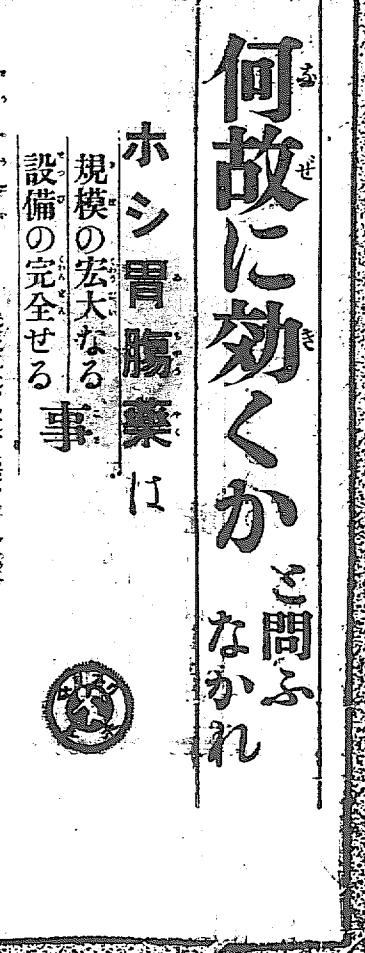 何故に効くか
と問ふ
なかれ
ホシ胃腸薬は
規模の宏大なる
設備の完全せる
事